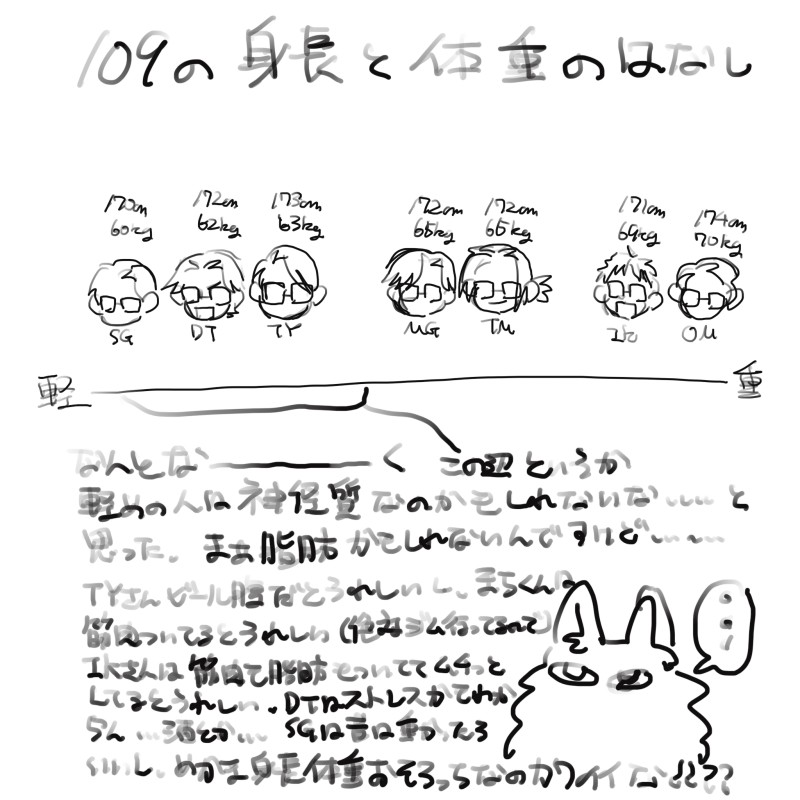 109の身長と体重のはなし
170cm 172cm 173cm 172cm 172cm 171cm 174cm
60kg 62kg 63kg 65kg 65kg 69kg 70kg
SG DT TY MG TM IK OM
軽 重
なんとな――――く この辺というか
軽めの人は神経質なのかもしれないな……と
思った。まぁ脂肪かもしれないんですけど……
TYさんビール腹だとうれしいし、まちくんは
筋肉ついてるとうれしい(絶対ジム行ってるので)
IKさんは筋肉で脂肪もついててムチっと
してるとうれしい。DTはストレスかてわか
らん…頭とか… SGは昔は重かったろ
いし、めがね身長体重おそろっちなのカワイイな!!??